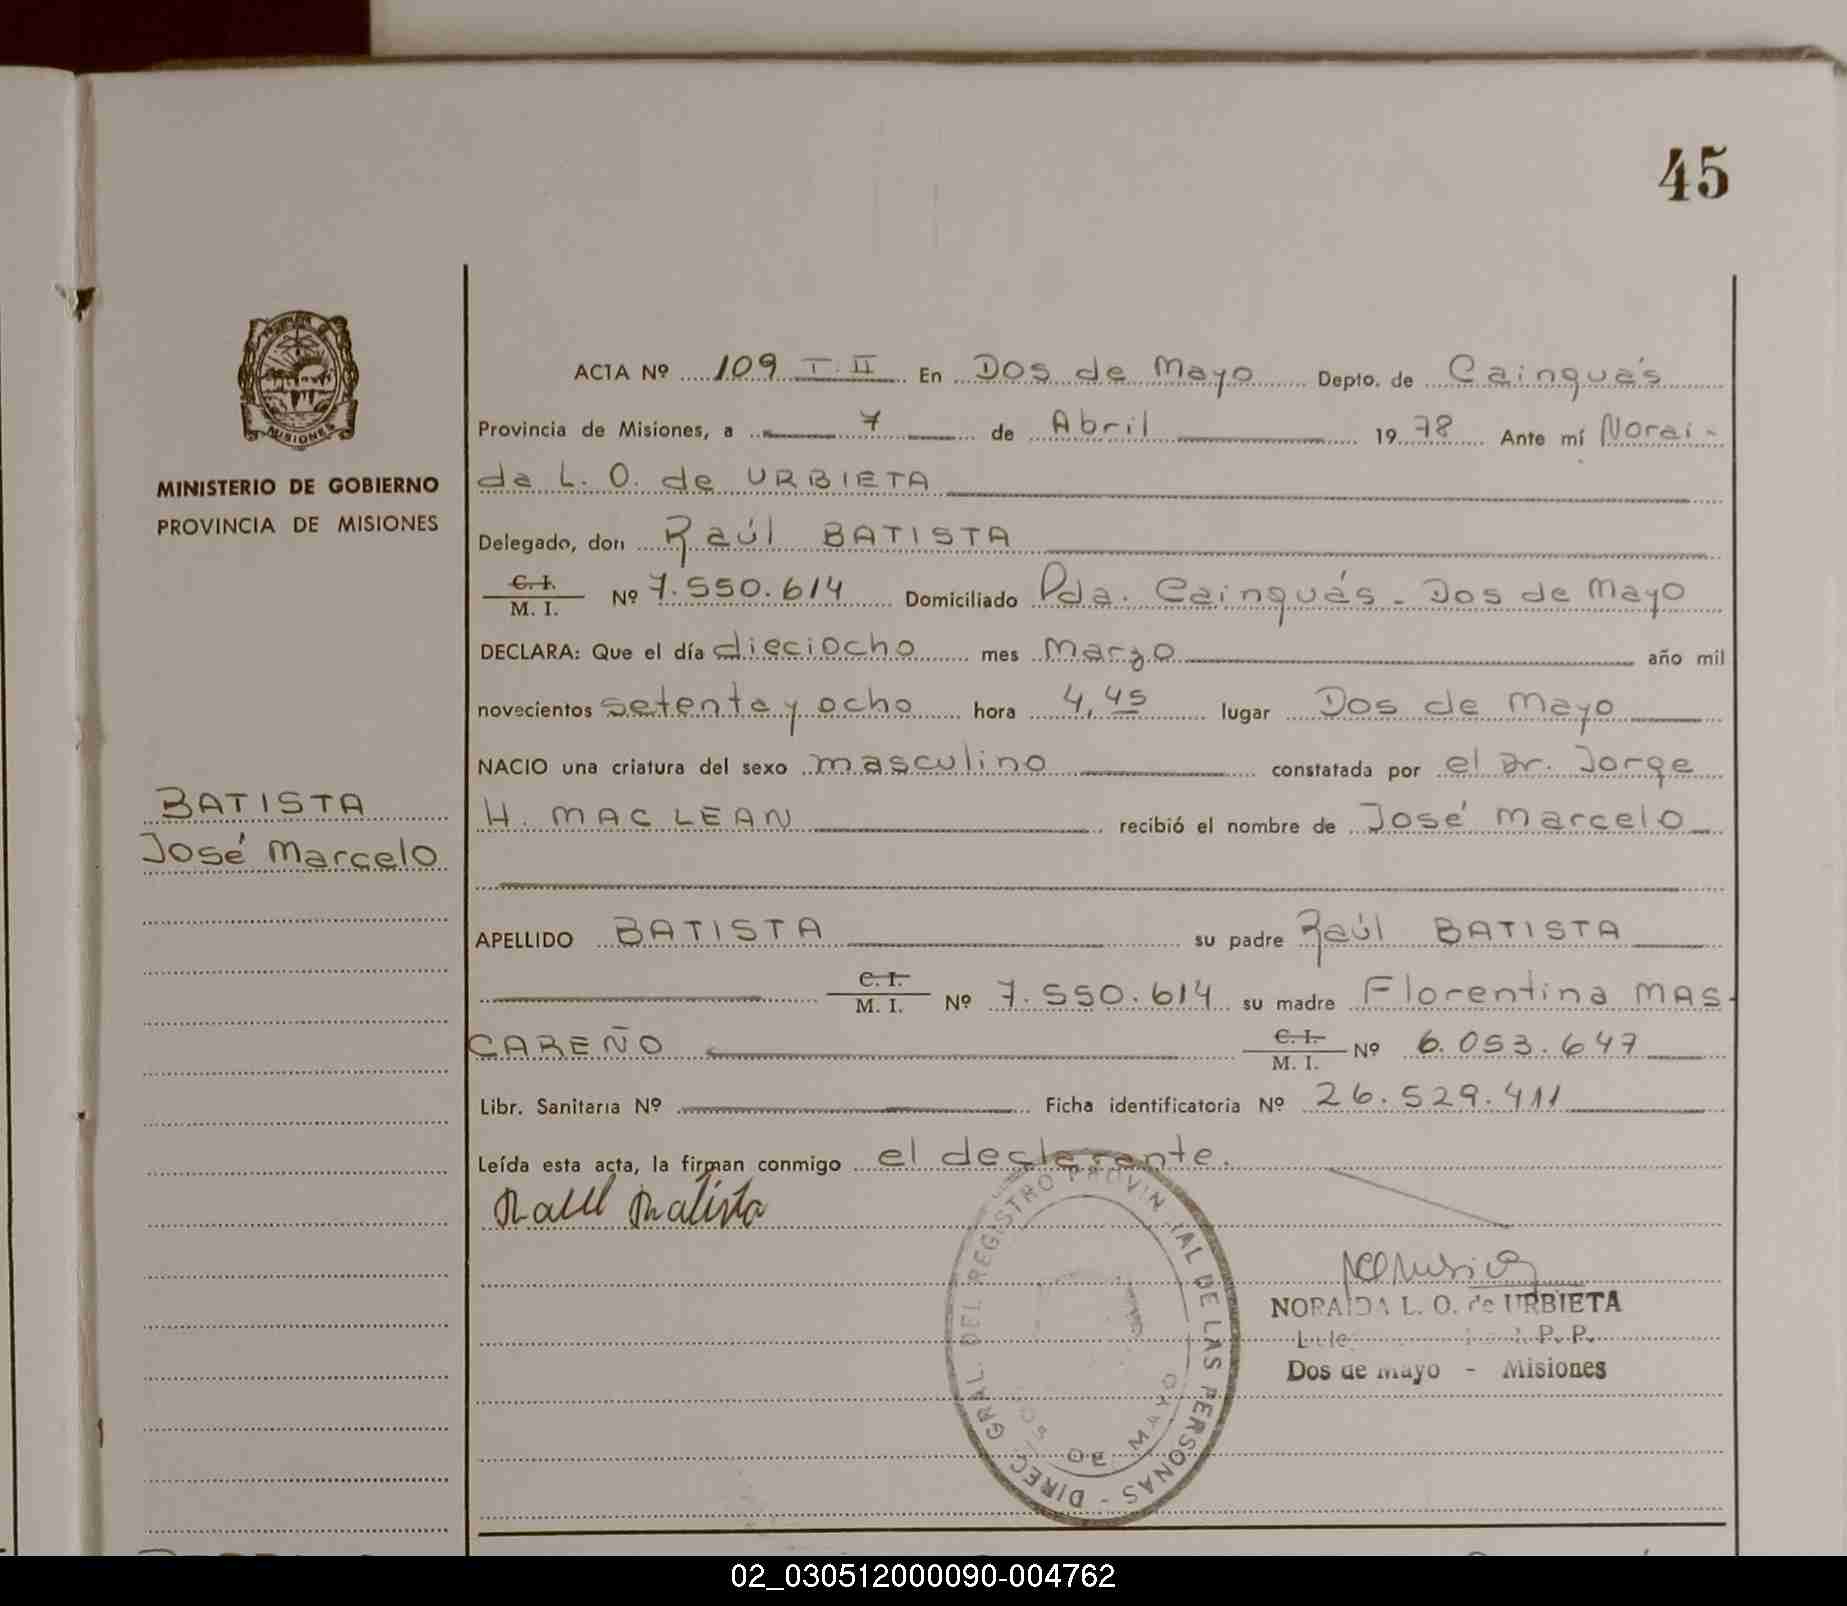 45
MISIONES
MINISTERIO DE GOBIERNO
PROVINCIA DE MISIONES
BATISTA
José Marcelo
ACTA Nº 109 T. II En Dos de Mayo Depto. de Cainguás
Provincia de Misiones, a 7 de Abril 1978 Ante mí Norai-
da L. O. de URBIETA
Delegado, don Raúl BATISTA
C. I.
M. I. Nº 7.550.614 Domiciliado Pda. Cainguás - Dos de Mayo
DECLARA: Que el día dieciocho mes Marzo año mil
novecientos setenta y ocho hora 4,45 lugar Dos de Mayo
NACIO una criatura del sexo masculino constatada por el Dr. Jorge
H. MAC LEAN recibió el nombre de José Marcelo
APELLIDO BATISTA su padre Raúl BATISTA
C. I.
M. I. Nº 7.550.614 su madre Florentina MAS-
CAREÑO C. I.
M. I. Nº 6.053.647
Libr. Sanitaria Nº Ficha identificatoria Nº 26.529.411
Leída esta acta, la firman conmigo el declarante.
Raul Batista
DIREC. GRAL. DEL REGISTRO PROVINCIAL DE LAS PERSONAS -
DOS DE MAYO
NORAIDA L. O. de URBIETA
P. P.
Dos de Mayo - Misiones
02_030512000090-004762